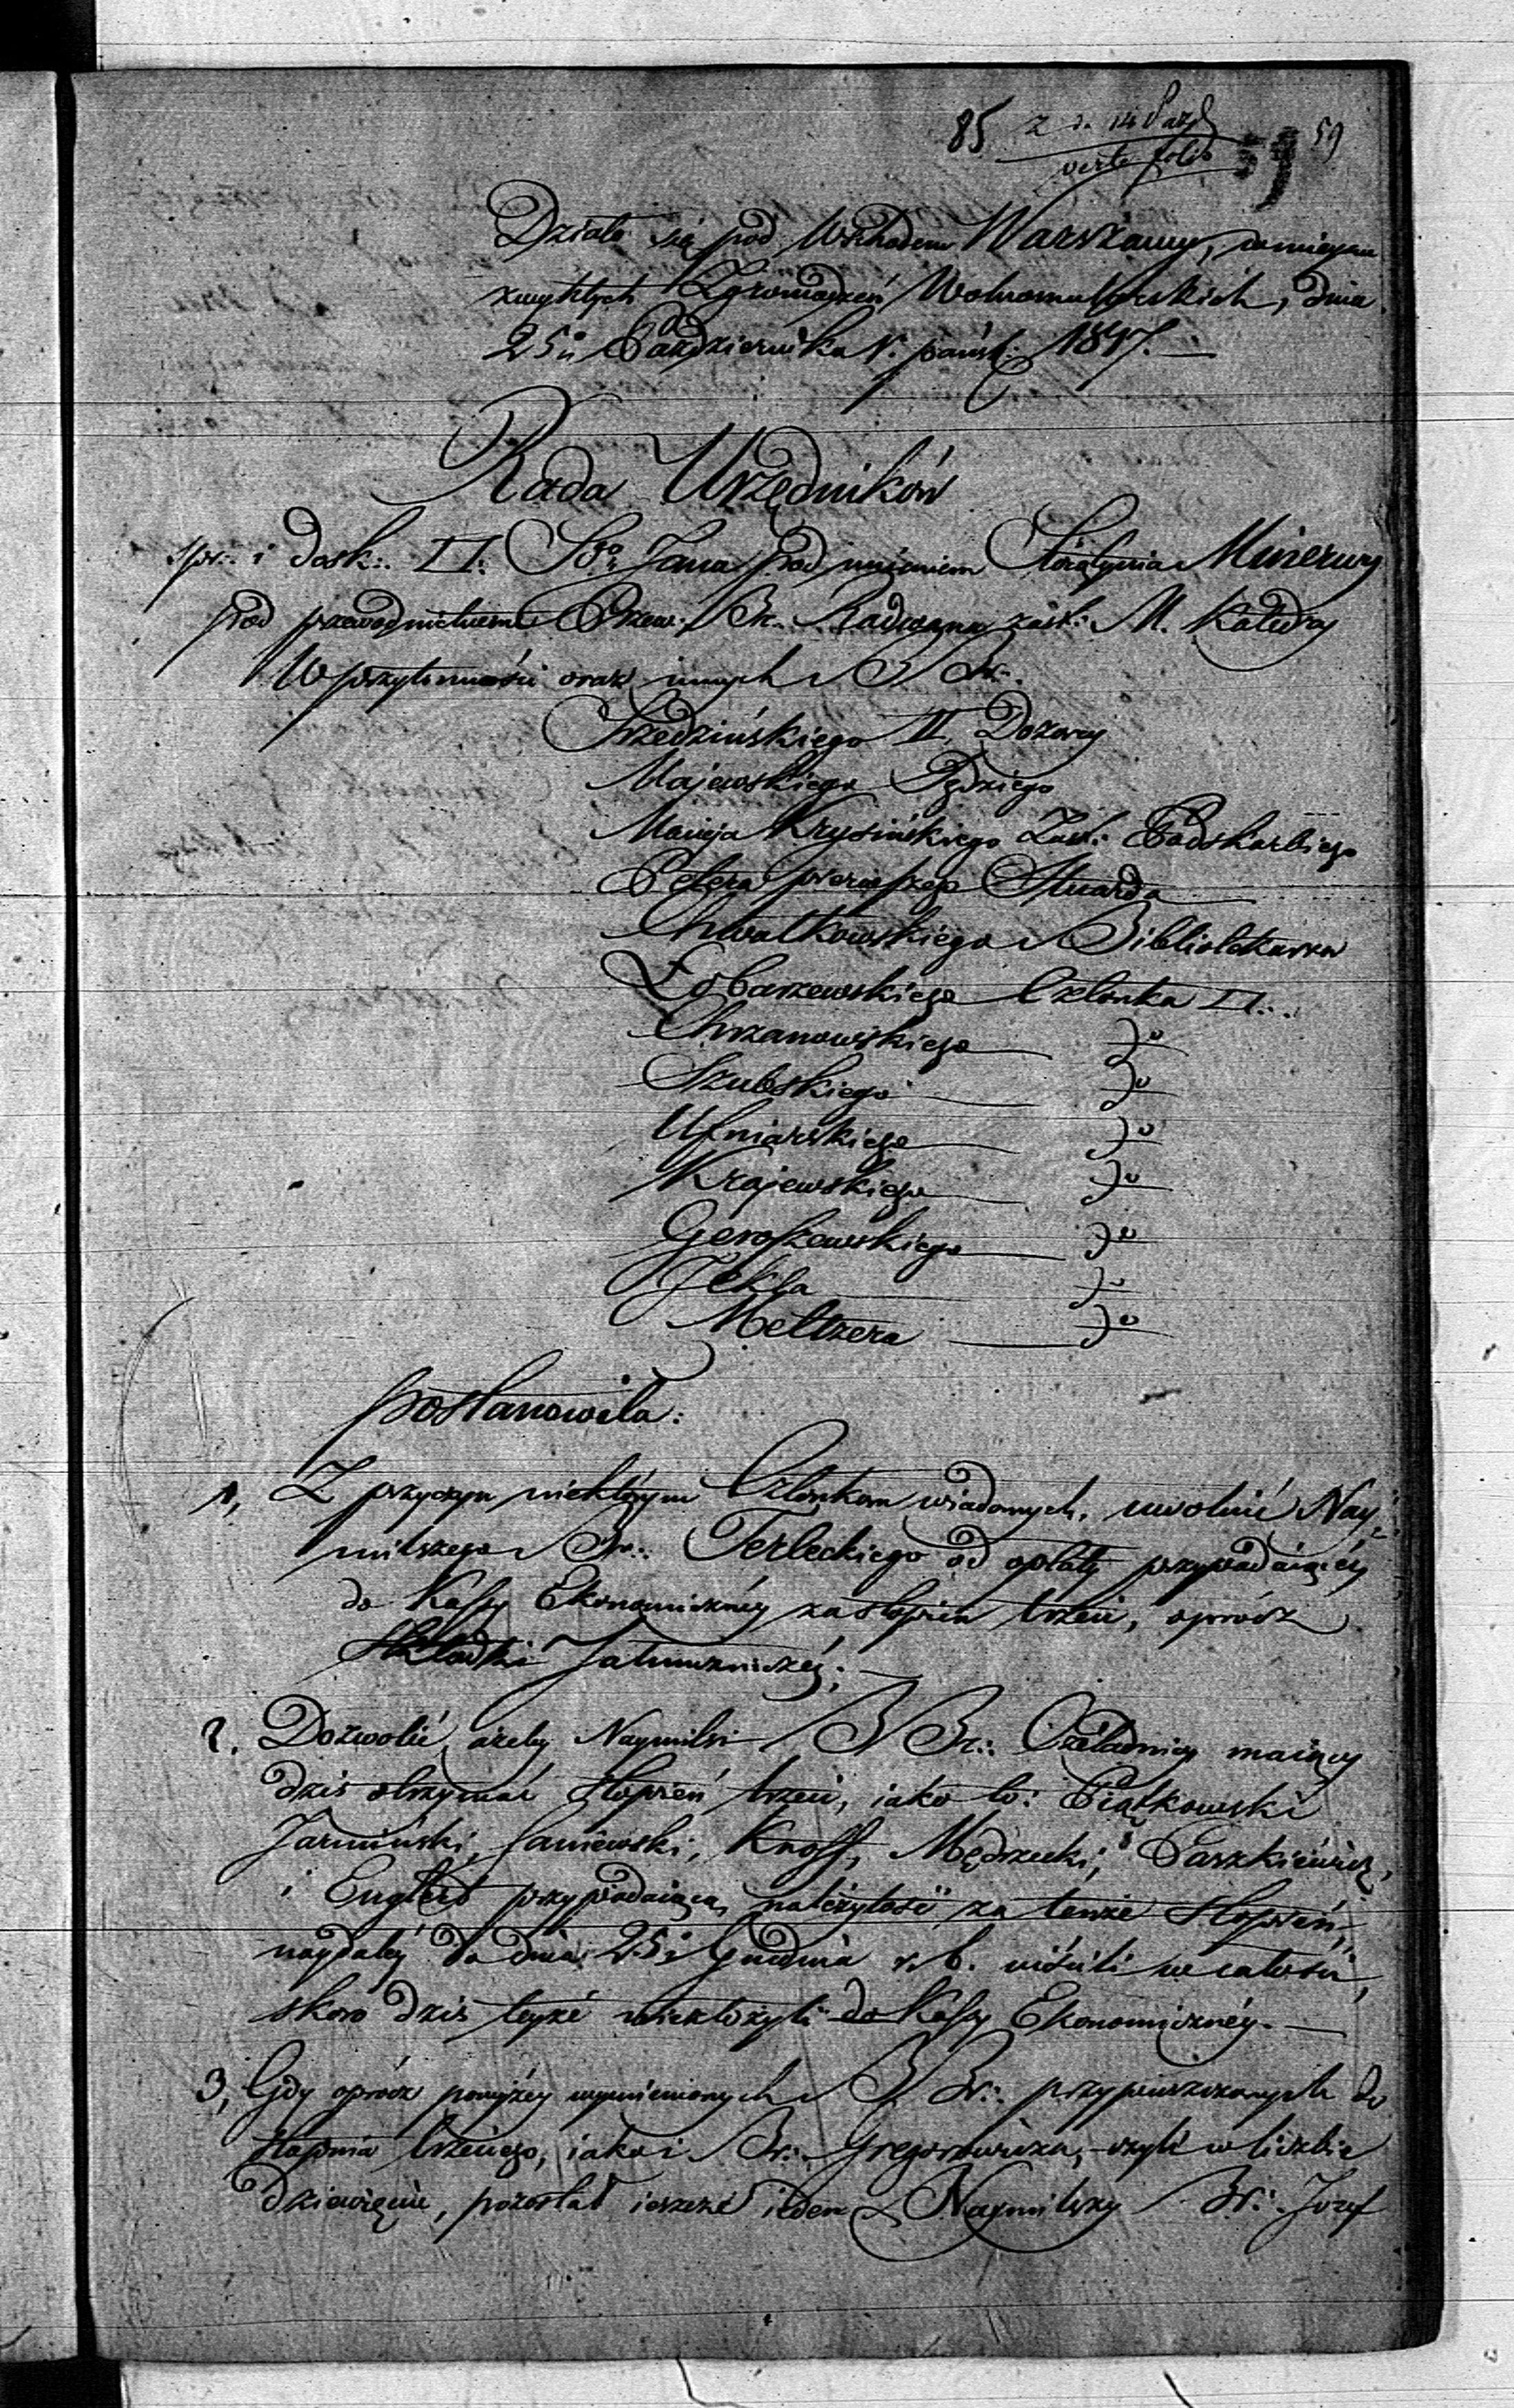 85 z d. 14 Paźd 59 59
verte folio
Działo się pod Wschodem Warszawy, w miejscu
zwykłych Zgromadzeń Wolnomularskich, dnia
25. Października r. pańsk: 1817.
Rada Urzędników
spr: i dosk: □: So: Jana pod imieniem Świątynia Minerwy
pod przewodnictwem Przew: Br: Radwana zast: M. Katedry
W przytomności oraz innych B Br:
Srzedzińskiego II Dozorcy
Majewskiego Sędziego
Macieja Krysińskiego Zast: Podskarbiego
Petera pierwszego Stuarda
Chwalkowskiego Bibliotekarza
Łobarzewskiego Członka □:
Chrzanowskiego do
Szubskiego do
Ufniarskiego do
Krajewskiego do
Geroszewskiego do
Jekla do
Meltzera do
postanowiła:
1, Z przyczyn niektórym Członkom wiadomych, uwolnić Nay-
milszego Br: Terleckiego od opłaty przypadaiącéy
do Kassy Ekonomicznéy za stopień trzeci, oprócz
Składki Jałmużniczéy.
2. Dozwolić, ażeby Naymilsi B Br: Czeladnicy maiący
dziś otrzymać stopień trzeci, iako to: Piątkowski
Jarmiński, Janiewski, Knoff, Mędrzecki, Paszkiéwicz,
i Englert przypadaiącą należytość za tenże stopień,
naydaléy do dnia 25. Grudnia r. b. uiścili w całości,
skoro dziś teyże nie złożyli do Kassy Ekonomicznéy.
3, Gdy oprócz powyżéy wymienionych B Br: przypuszczonych do
stopnia trzeciego, iako i Br: Gregorowicza, czyli w liczbie
dziewięciu, pozostał ieszcze ieden Naymilszy Br: Jozef